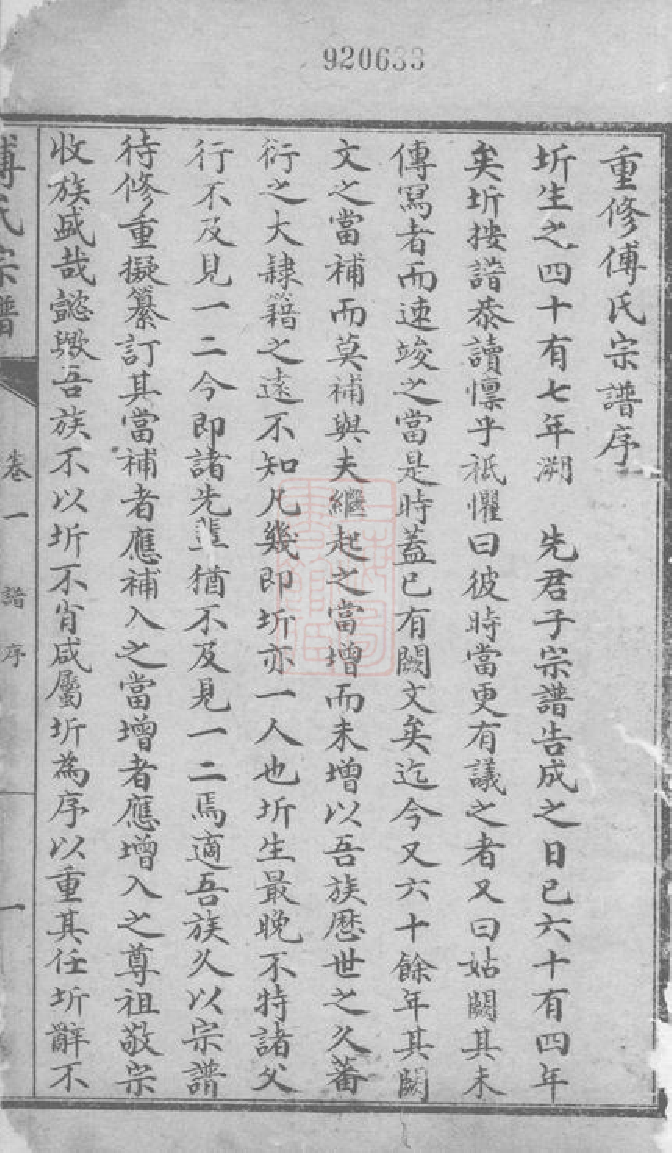 920633
重修傅氏宗譜序
圻生之四十有七年溯　先君子宗譜告成之日已六十有四年
矣圻按譜恭讀懍乎祇懼曰彼時當更有議之者又曰姑闕其未
傳寫者而速竣之當是時蓋已有闕文矣迄今又六十餘年其闕
文之當補而莫補與夫繼起之當增而未增以吾族歷世之久蕃
衍之大隸籍之遠不知凡幾即圻亦一人也圻生最晚不特諸父
行不及見一二今即諸先輩猶不及見一二焉適吾族久以宗譜
待修重擬纂訂其當補者應補入之當增者應增入之尊祖敬宗
收族盛哉懿歟吾族不以圻不肖咸屬圻為序以重其任圻辭不
傅氏宗譜
卷一
譜序
一